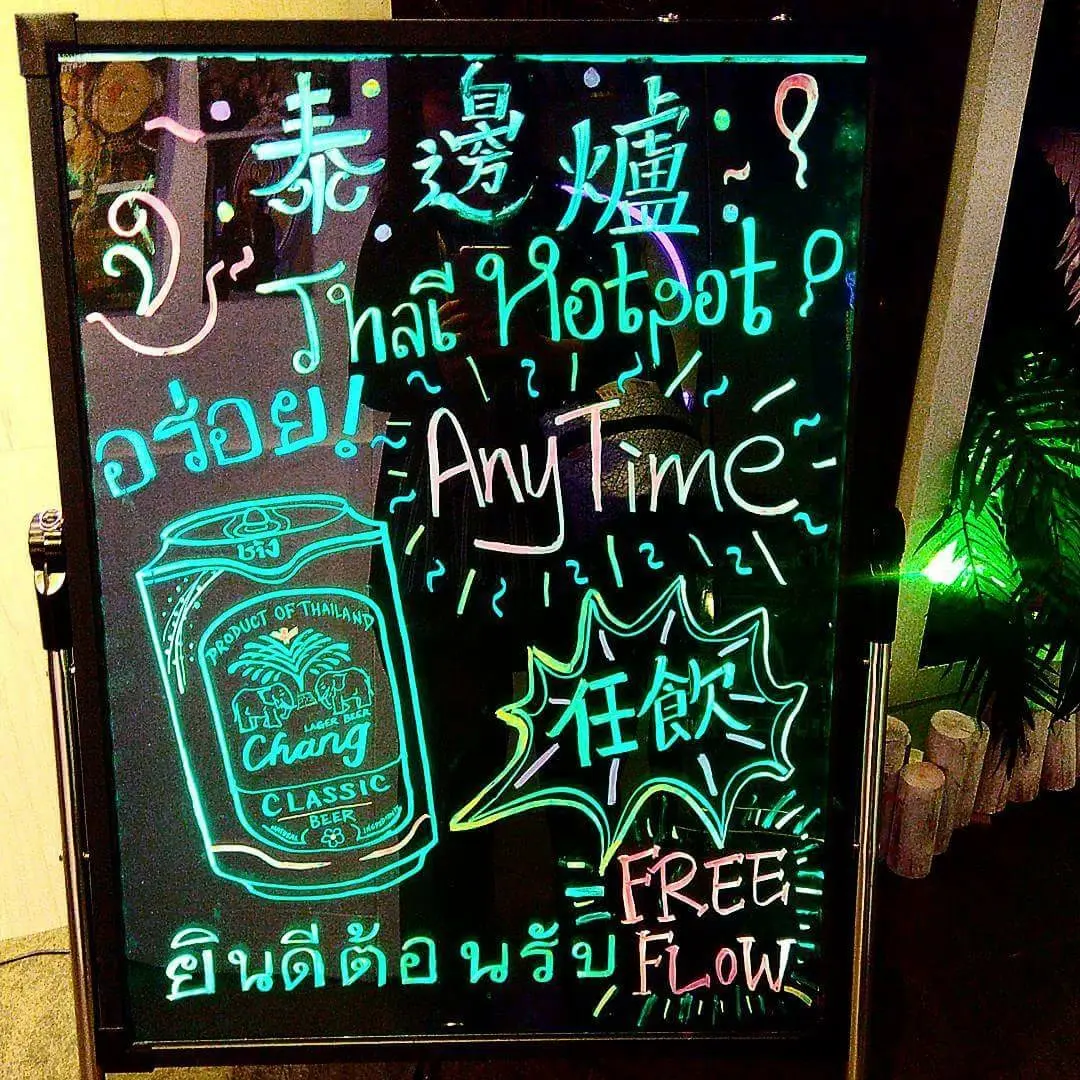 泰邊爐
Thai Hotpot
อร่อย!
AnyTime
ช้าง
PRODUCT OF THAILAND
LAGER BEER
Chang
CLASSIC
BEER
任飲
FREE
FLOW
ยินดีต้อนรับ